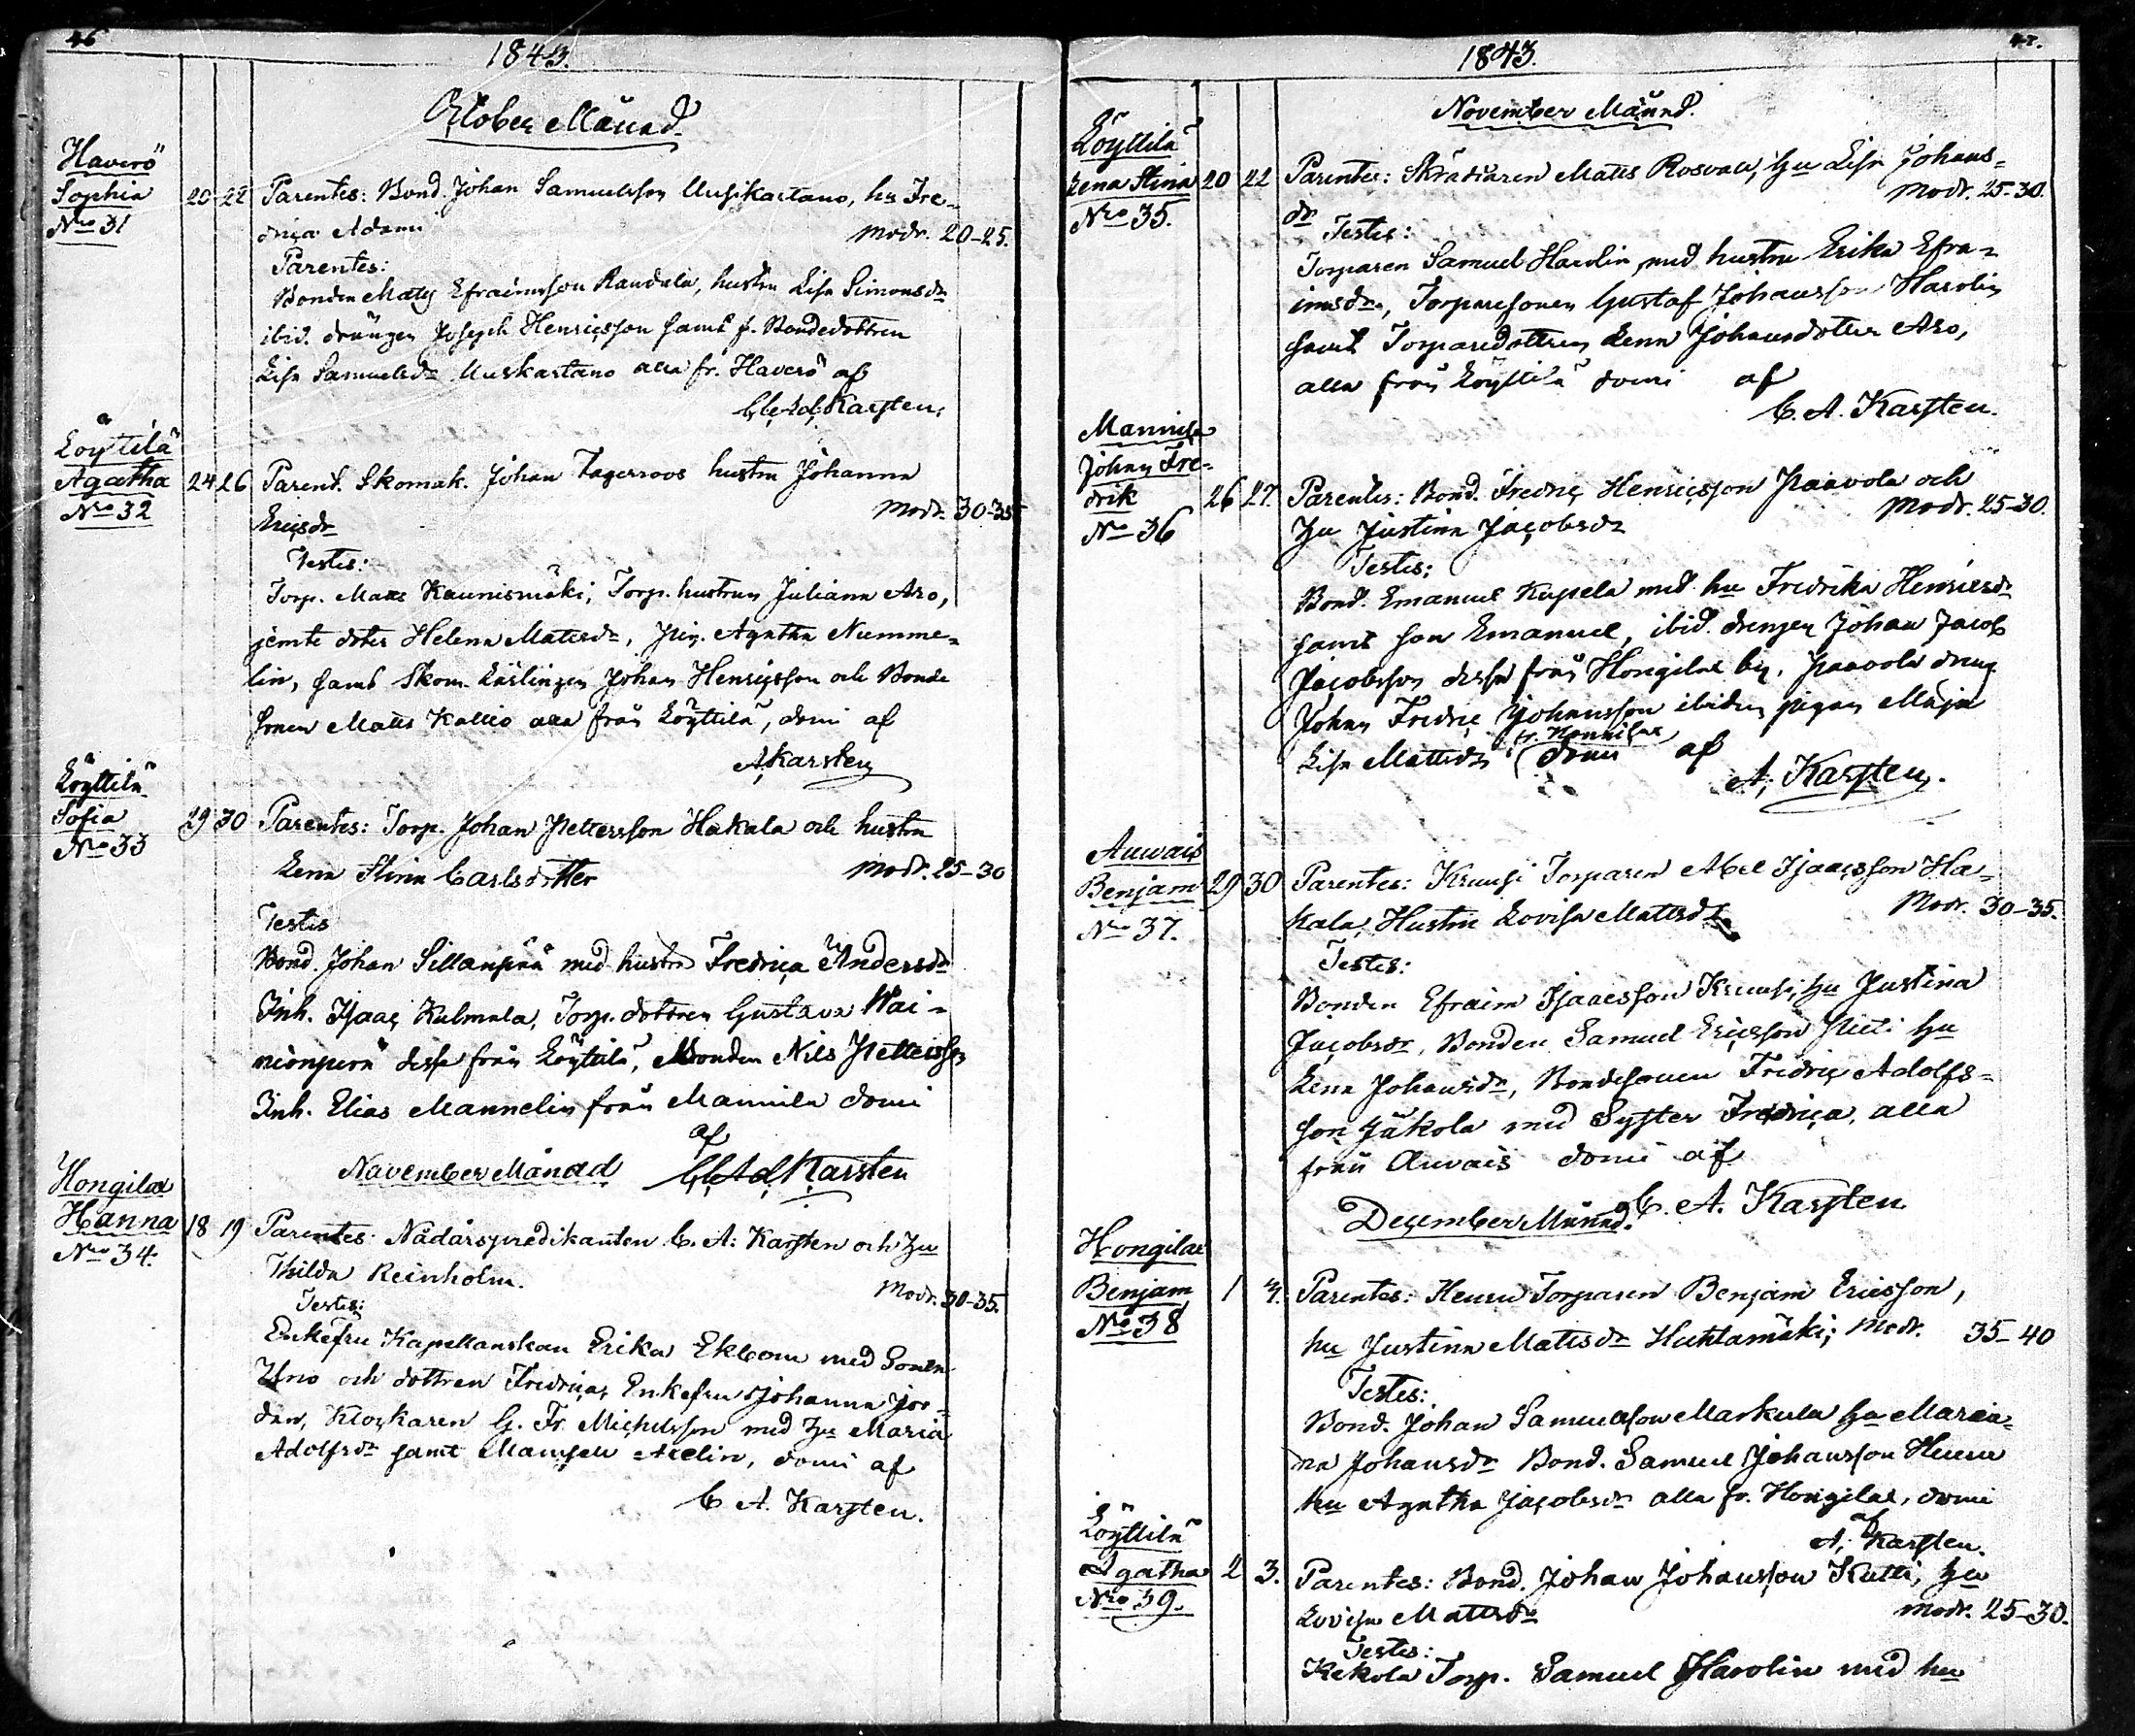 46
1843.
October Månad.
Haverö
Sophia 20 22 Parentes: Bond. Johan Samuelsson Uusikartano, hu Fre-
No 31
drica Adami Modr. 20-25.
Parentes:
Bonden Mats Efraimsson Raudala, hustru Lisa Simonsdr
ibid. drängen Joseph Henricsson samt f. Bondedottren
Lisa Samuelsdr Uuskartano alla fr. Haverö af
C. Ad. Karsten.
Löyttilä
Agatha 24 26 Parent. Skomak. Johan Fagerroos hustru Johanna
No 32
Ericsdr Modr. 30-35
Testes:
Torp. Matts Kaunismäki, Torp. hustrun Juliana Aro,
jemte doter Helena Mattsdr, Pig. Agatha Numme-
lin, samt Skom. Lärlingen Johan Henricsson och Bonde
sonen Matts Kallio alla från Löyttilä, domi af
A. Karsten
Löyttilä
Sofia 29 30 Parentes: Torp. Johan Pettersson Hakala och hustru
No 33
Lena Stina Carlsdotter Modr. 25-30
Testes
Bond. Johan Sillanpää med hustru Fredrica Andersdr
Inh. Isaac Kulmala, Torp. dottren Gustava Wai-
nionperä desse från Löyttilä, Bonden Nils Pettersson
Inh. Elias Mannelin från Mannila domi
af
November Månad C. Ad. Karsten
Hongilax
Hanna 18 19 Parentes: Nådårspredikanten C. A. Karsten och hu
No 34.
Thilda Reinholm. Modr. 30-35.
Testes:
Enkefru Kapellanskan Erika Ekbom med Sonen
Urio och dottren Fredrica, Enkefru Johanna Jor-
dan, Klockaren G. Fr. Michelsson med hu Maria
Adolfsdr samt Mamsell Avelin, domi af
C A. Karsten.
47.
1843.
November Månad.
Löyttilä
Lena Stina 20 22 Parentes: Skräddaren Matts Rosvall, hu Lisa Johans-
No 35.
dr Modr. 25-30.
Testes:
Torparen Samuel Harolin med hustru Erika Efra-
imsdr, Torparesonen Gustaf Johansson Harolin
samt Torparedottren Lena Johansdotter Aro,
alla från Löyttilä domi af
C. A. Karsten.
Mannila
Johan Fre-
drik 26 27. Parentes: Bond. Fredric Henricsson Paavola och
No 36
hu Justina Jacobsdr Modr. 25-30.
Testes:
Bond. Emanuel Kupela med hu Fredrika Henricsdr
samt son Emanuel, ibid. drengen Johan Jacob
Jacobsson desse från Hongilax by, Paavola dreng
Johan Fredric Johansson ibidem pigan Maja
Lisa Mattsdr fr. Hongilax domi af
A. Karsten.
Auvais
Benjam 29 30 Parentes: Kruusi Torparen Abel Isaacsson Ha-
No 37.
kala, Hustru Lovisa Mattsdr Modr. 30-35.
Testes:
Bonden Efraim Isaacsson Kruusi, hu Justina
Jacobsdr, Bonden Samuel Ericsson Pieti hu
Lena Johansdr, Bondesonen Fredric Adolfs-
son Jäkola med Syster Fredrica, alla
från Auvais domi af
C. A. Karsten
December Månad.
Hongilax
Benjam 1 4. Parentes: Heuru Torparen Benjam Ericsson,
No 38
hu Justina Mattsdr Huhtamäki; Modr. 35-40
Testes:
Bond. Johan Samuelsson Markula hu Maria-
na Johansdr Bond. Samuel Johansson Heuru
hu Agatha Jacobsdr alla fr. Hongilax, domi
af
A. Karsten.
Löyttilä
Agatha 2 3. Parentes: Bond. Johan Johansson Kutti, hu
No 39.
Lovisa Mattsdr Modr. 25-30.
Testes:
Kekola Torp. Samuel Harolin med hu